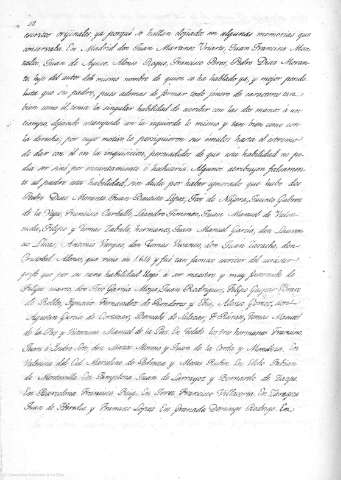 10
escritos originales, ya porque se hallan elogiados en algunas memorias que
conservaba. En Madrid don Juan Martinez Uriarte, Juan Francisco Mon
Juan de Ayuso, Alonso Roque, Francisco Perez, Pedro Diaz Moran
te, hijo del autor del mismo nombre de quien se ha hablado ya, y mejor pendo
lista que su padre, pues ademas de formar todo genero de caracteres tam
bien como el tenia la singular habilidad de escribir con las dos manos à un
tiempo, dejando escrito con la izquierda lo mismo y tan bien como con
la derecha; por cuyo motivo lo persiguieron sus emulos hasta el extremo
de dar con él en la inquisicion, persuadidos de que esta habilidad no po
dia ser sinó por encantamiento ó hechiceria. Algunos atribuyen falsamen
te al padre esta habilidad, sin duda por haber ignorado que hubo dos
Pedro Diaz Morante. Juan Bautista Lopez, Jose de Nájera, Jacinto Galvez
de la Vega, Francisco Carballo, Leandro Jimenez, Juan Manuel de Valen
zuela, Felipe y Tomas Zabala, hermanos, Juan Manuel Garcia, don Lauren
cio Lucas, Antonio Vargas, don Tomas Vivanco, don Juan
Cristobal Alonso, que vivia en 1614 y fué tan famoso escritor del caracter
que por su rara habilidad llegó á ser maestro y muy favorecido de
Felipe cuarto, don Jose Garcia Moya, Juan Rodriguez, Felipe Gaspar Bravo
de Robles, Ignacio Fernandez de Alonso Gomez, don
Agustin Garcia de Cortazar, Bernardo de Manuel
de la Paz y Victoriano Manuel de la Paz. En Toledo los tres hermanos Francisco,
Juan é Isidro Moreno y Juan de la Cerda y Mendoza. En
Valencia del Cid Marcelino de Pedraza y Mateo Rubio. En Uclés Fabian
de Montemilla. En Pamplona Juan de Larrayoz y Bernardo de Zazpe.
En Barcelona Francisco Puig. En Francisco En Zaragoza
Juan de y Francisco Lopez. En Granada Domingo Rodrigo. En